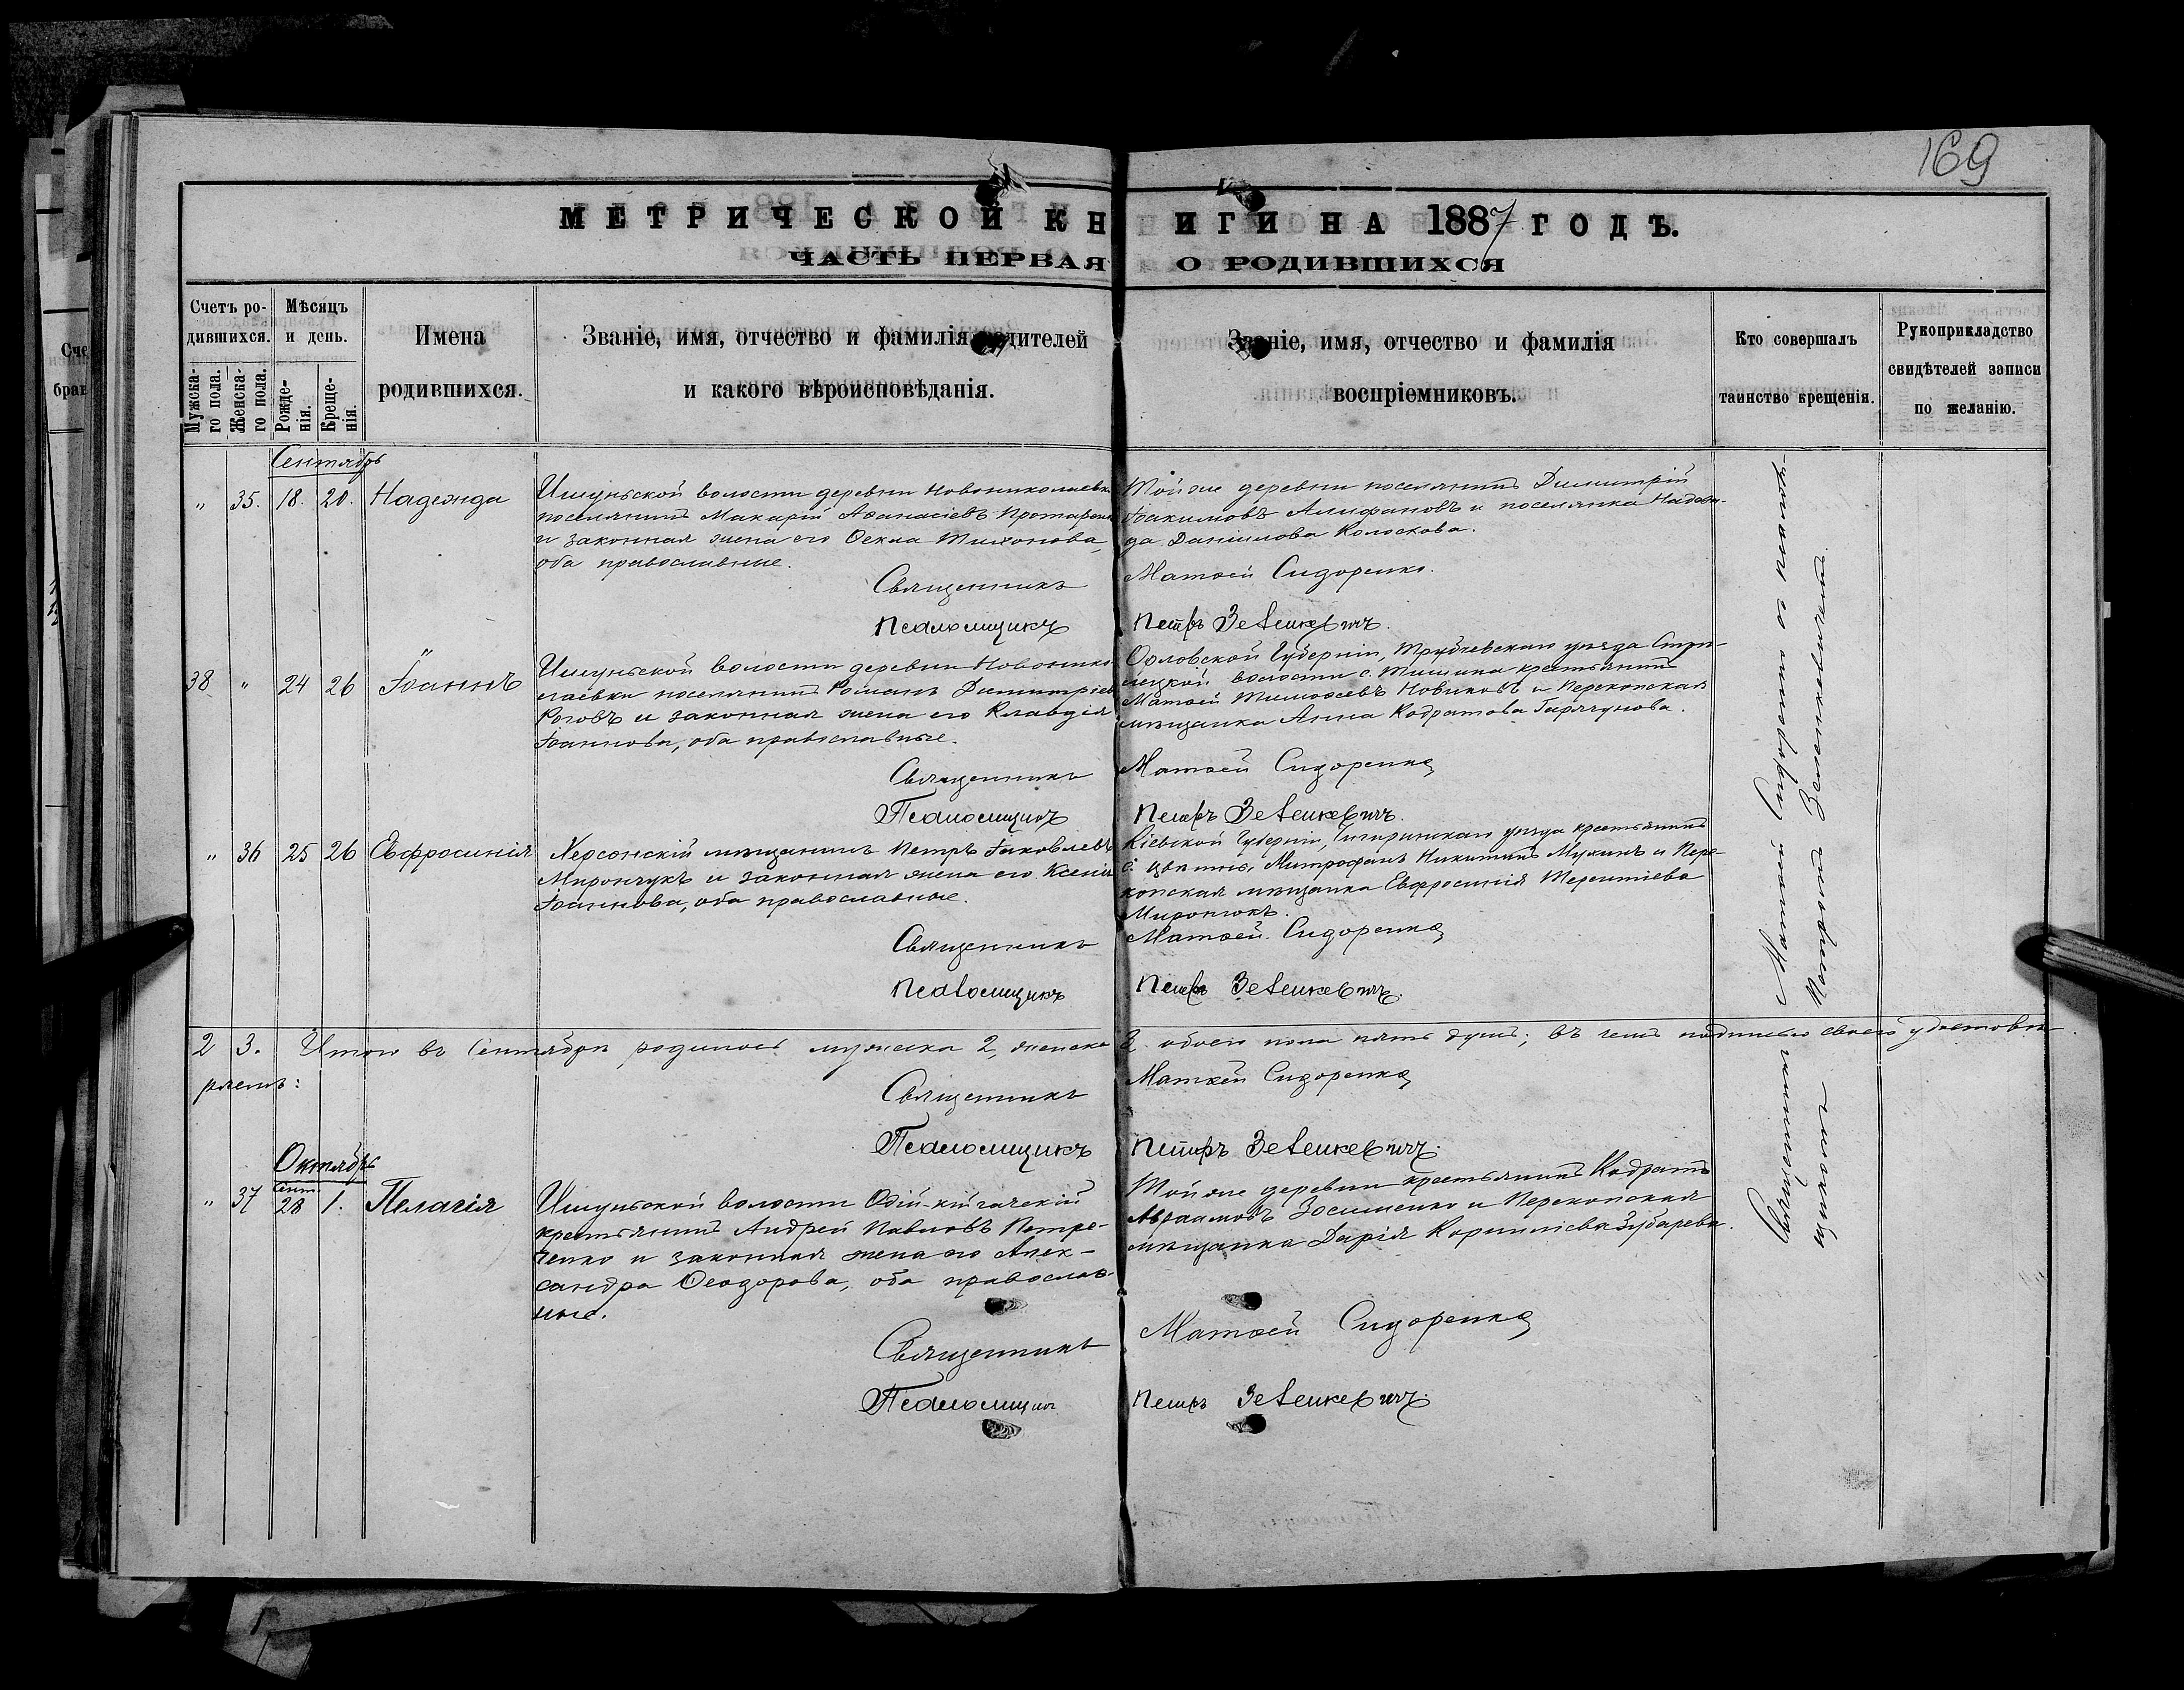 169
МЕТРИЧЕСКОЙ КНИГИ НА 1887 ГОДЪ.
ЧАСТЬ ПЕРВАЯ О РОДИВШИХСЯ
Счетъ ро-
дившихся.
Мужска-
го пола.
Женска-
го пола.
Мѣсяцъ
и день.
Рожде-
нія.
Креще-
нія.
Имена
родившихся.
Званіе, имя, отчество и фамилія родителей
и какого вѣроисповѣданія.
Званіе, имя, отчество и фамилія
воспріемниковъ.
Кто совершалъ
таинство крещенія.
Рукоприкладство
свидѣтелей записи
по желанію.
Сентябрь
" 35. 18. 20. Надежда
Ишуньской волости деревни Новониколаевки
поселянинъ Макарій Аѳанасіевъ
и законная жена его Ѳекла Тихонова,
оба православные.
Той же деревни поселянинъ Димитрій
Іоакимовъ Алифановъ и поселянка Надеж-
да Даніилова Колоскова.
Священникъ Матѳей Сидоренко.
Псаломщикъ Петръ Зеленкевичъ.
38 " 24 26 Іоаннъ
Ишуньской волости деревни Новонико-
лаевки поселянинъ Романъ Димитріевъ
Роговъ и законная жена его Клавдія
Іоаннова, оба православные.
Орловской Губерніи, Трубчевскаго уѣзда
волости с. Тишина крестьянинъ
Матѳей Тимоѳеевъ Новиковъ и Перекопская
мѣщанка Анна Кодратова Гарячунова.
Священникъ Матѳей Сидоренко
Псаломщикъ Петръ Зеленкевичъ.
" 36 25 26 Евфросинія
Херсонскій мѣщанинъ Петръ Іаковлевъ
Мирончукъ и законная жена его Ксенія
Іоаннова, оба православные.
Кіевской Губерніи, Чигиринскаго уѣзда крестьянинъ
с. Цвѣтно, Митрофанъ Никитинъ Мухинъ и Пере-
копская мѣщанка Евфросинія Терентіева
Миронюкъ.
Священникъ Матѳей Сидоренко
Псаломщикъ Петръ Зеленкевичъ.
2 3. Итого въ Сентябрѣ родилось мужеска 2, женска 3 обоего пола пять душъ; въ чемъ подписью своею удостовѣ-
ряемъ:
Священникъ Матѳей Сидоренко
Псаломщикъ Петръ Зеленкевичъ.
Октябрь
" 37 Сент. 28 1. Пелагія
Ишуньской волости
крестьянинъ Андрей Павловъ Петре-
ченко и законная жена его Алек-
сандра Ѳеодорова, оба православ-
ные.
Той же деревни крестьянинъ Кодратъ
Авраамовъ Зосименко и Перекопская
мѣщанка Дарія Корниліева Зубарева.
Священникъ Матѳей Сидоренко
Псаломщикъ Петръ Зеленкевичъ.
Священникъ Матѳей Сидоренко съ псалом-
щикомъ Петромъ Зеленкевичемъ.